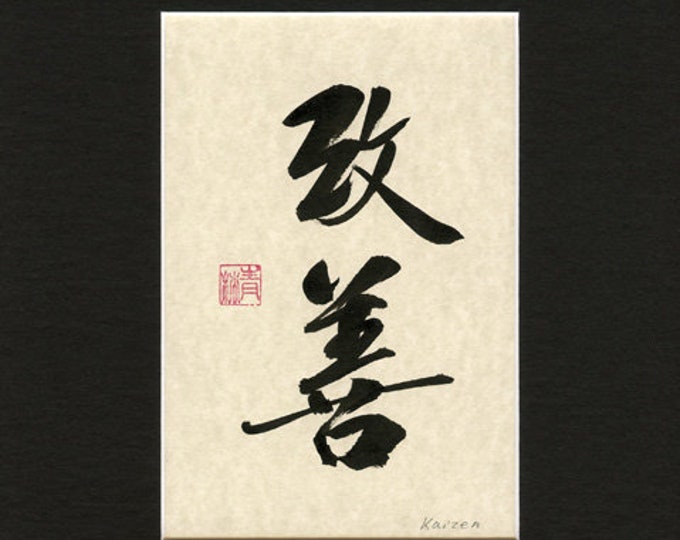 改善
Kaizen